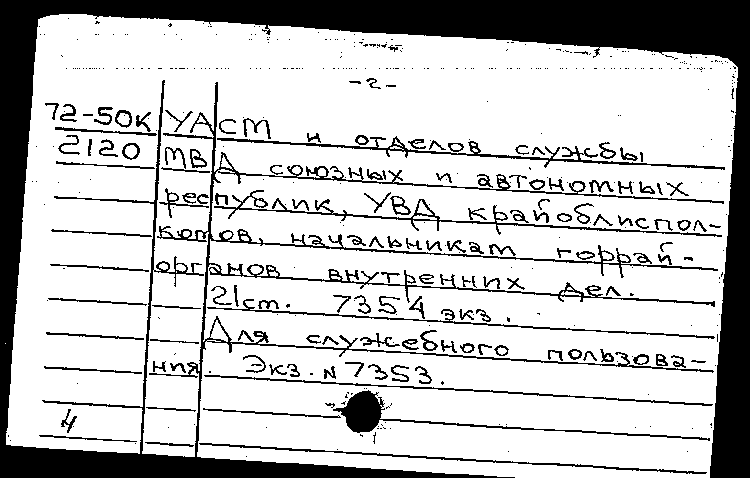 -2-
72-50к УАСТ и отделов службы
2120 МВД союзных и автономных
республик, УВД крайоблиспол-
комов, начальникам горрай-
органов внутренних дел.
21 ст. 7354 экз.
Для служебного пользова-
ния. Экз. N 7353.
4